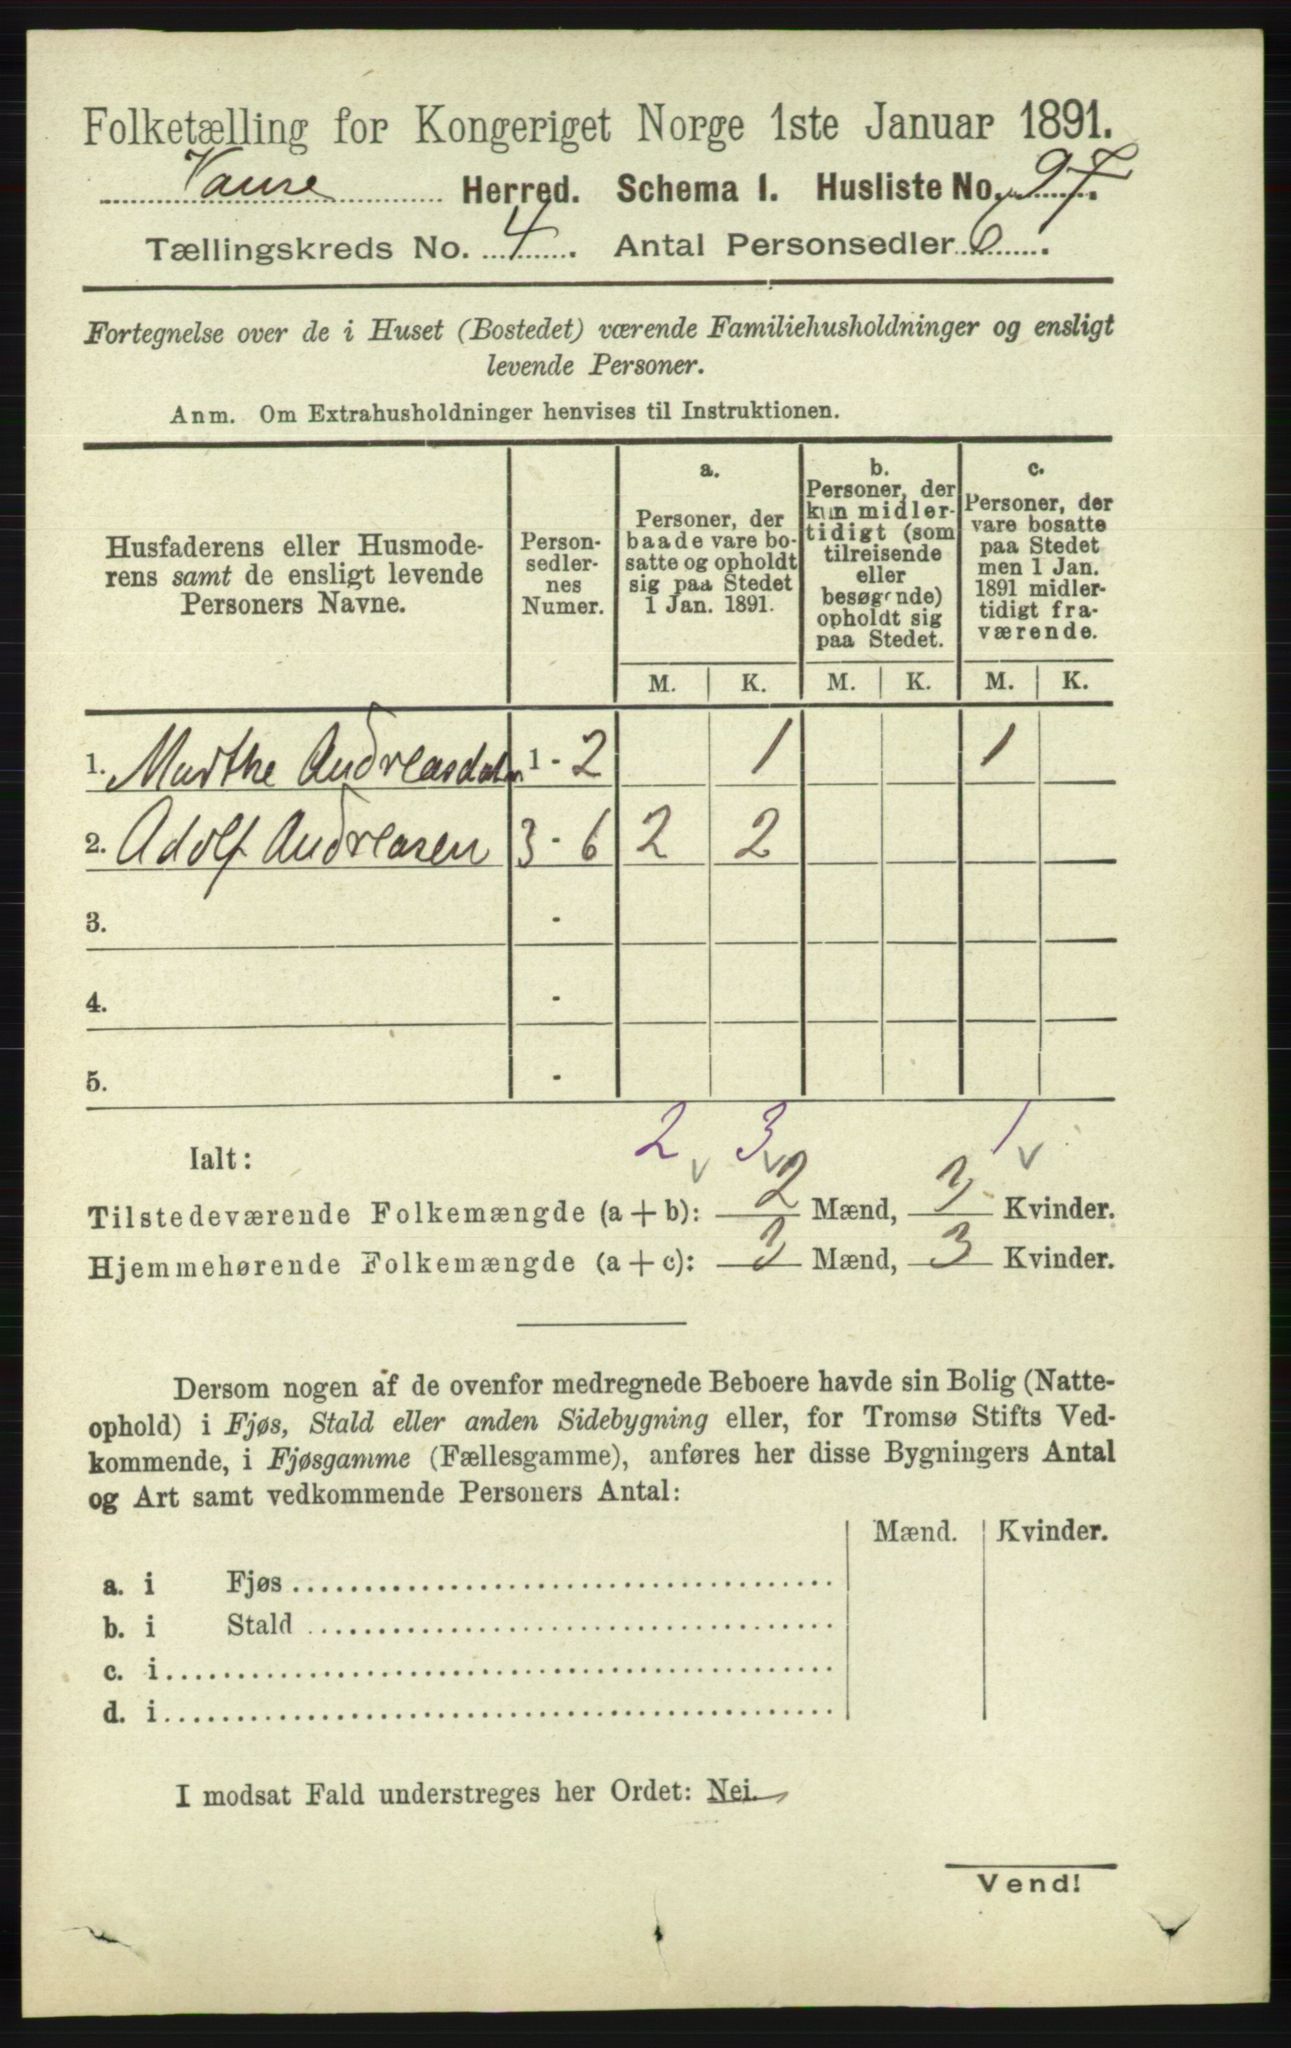 Folketælling for Kongeriget Norge 1ste Januar 1891.
Vanse Herred. Schema 1. Husliste No. 97.
Tællingskreds No. 4. Antal Personsedler 6.
Fortegnelse over de i Huset (Bostedet) værende Familiehusholdninger og ensligt
levende Personer.
Anm. Om Extrahusholdninger henvises til Instruktionen.
Husfaderens eller Husmode-
rens samt de ensligt levende
Personers Navne.
Person-
sedler-
nes
Numer.
a.
Personer, der
baade vare bo-
satte og opholdt
sig paa Stedet
1 Jan. 1891.
b.
Personer, der
kun midler-
tidigt (som
tilreisende
eller
besøgende)
opholdt sig
paa Stedet.
c.
Personer, der
vare bosatte
paa Stedet
men 1 Jan.
1891 midler-
tidigt fra-
værende.
M. K. M. K. M. K.
1. Marthe Andreasdater 1 - 2 1 1
2. Adolf Andreasen 3 - 6 2 2
3. -
4. -
5. -
2 3 1
Ialt:
Tilstedeværende Folkemængde (a + b): 2 Mænd, 3 Kvinder.
Hjemmehørende Folkemængde (a + c): 3 Mænd, 3 Kvinder.
Dersom nogen af de ovenfor medregnede Beboere havde sin Bolig (Natte-
ophold) i Fjøs, Stald eller anden Sidebygning eller, for Tromsø Stifts Ved-
kommende, i Fjøsgamme (Fællesgamme), anføres her disse Bygningers Antal
og Art samt vedkommende Personers Antal:
Mænd. Kvinder.
a. i Fjøs
b. i Stald
c. i
d. i
I modsat Fald understreges her Ordet: Nei.
Vend!